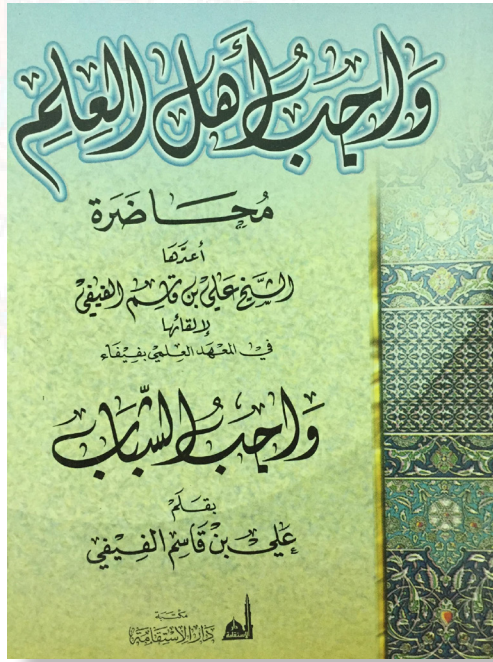 وَاجِبُ أَهْلِ العِلْمِ
مُحَاضَرَة
أعدَّها
الشَّيْخ عَلي بن قاسِم الفيفي
لإلقائها
في المعهد العلمي بفيفاء
وَاجِبُ الشَّبَابِ
بقَلَم
عَلي بن قَاسِم الفِيفي
مكتبة
دَارُ الاسْتِقَامَة